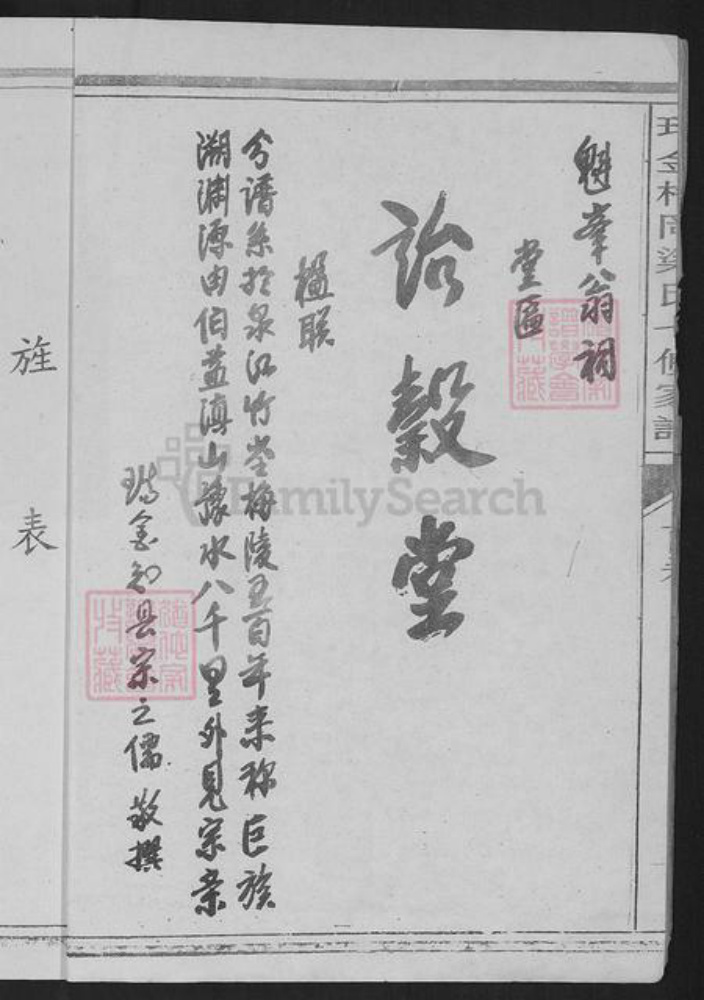 魁峯翁祠
堂匾
詒穀堂
楹联
分譜系於泉江竹堂梅陵五百年来称巨族
溯渊源由伯益滇山豫水八千里外見宗亲
瑞金知县宗之儒敬撰
旌表
FamilySearch